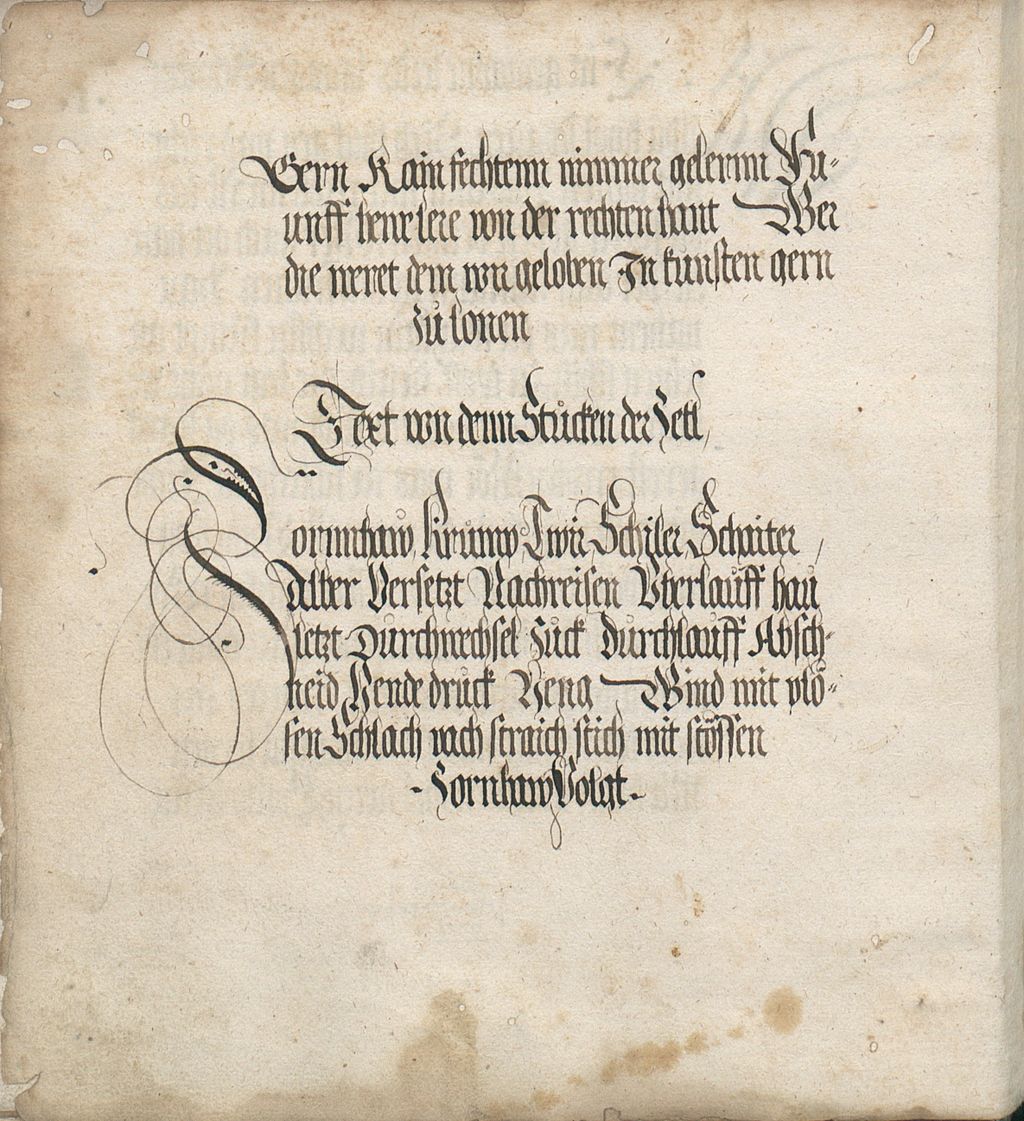 Gern Kain fechtenn nimmer gelernn Fu-
unff heue lere von der rechten hant Wer
die weret dem wir geloben In kunsten gern
zů lonen
Text von denn Stůcken der Zetl
Zornnhaw Krump Twir Schiler Schaiter
Alber Versetzt Nachreisen Vberlauff hau
letzt Durchwechsel Zuck Durchlauff Absch-
neid Hende druck Heng Wind mit plö-
sen Schlach vach straich stich mit stössen
Zornhaw Volgt